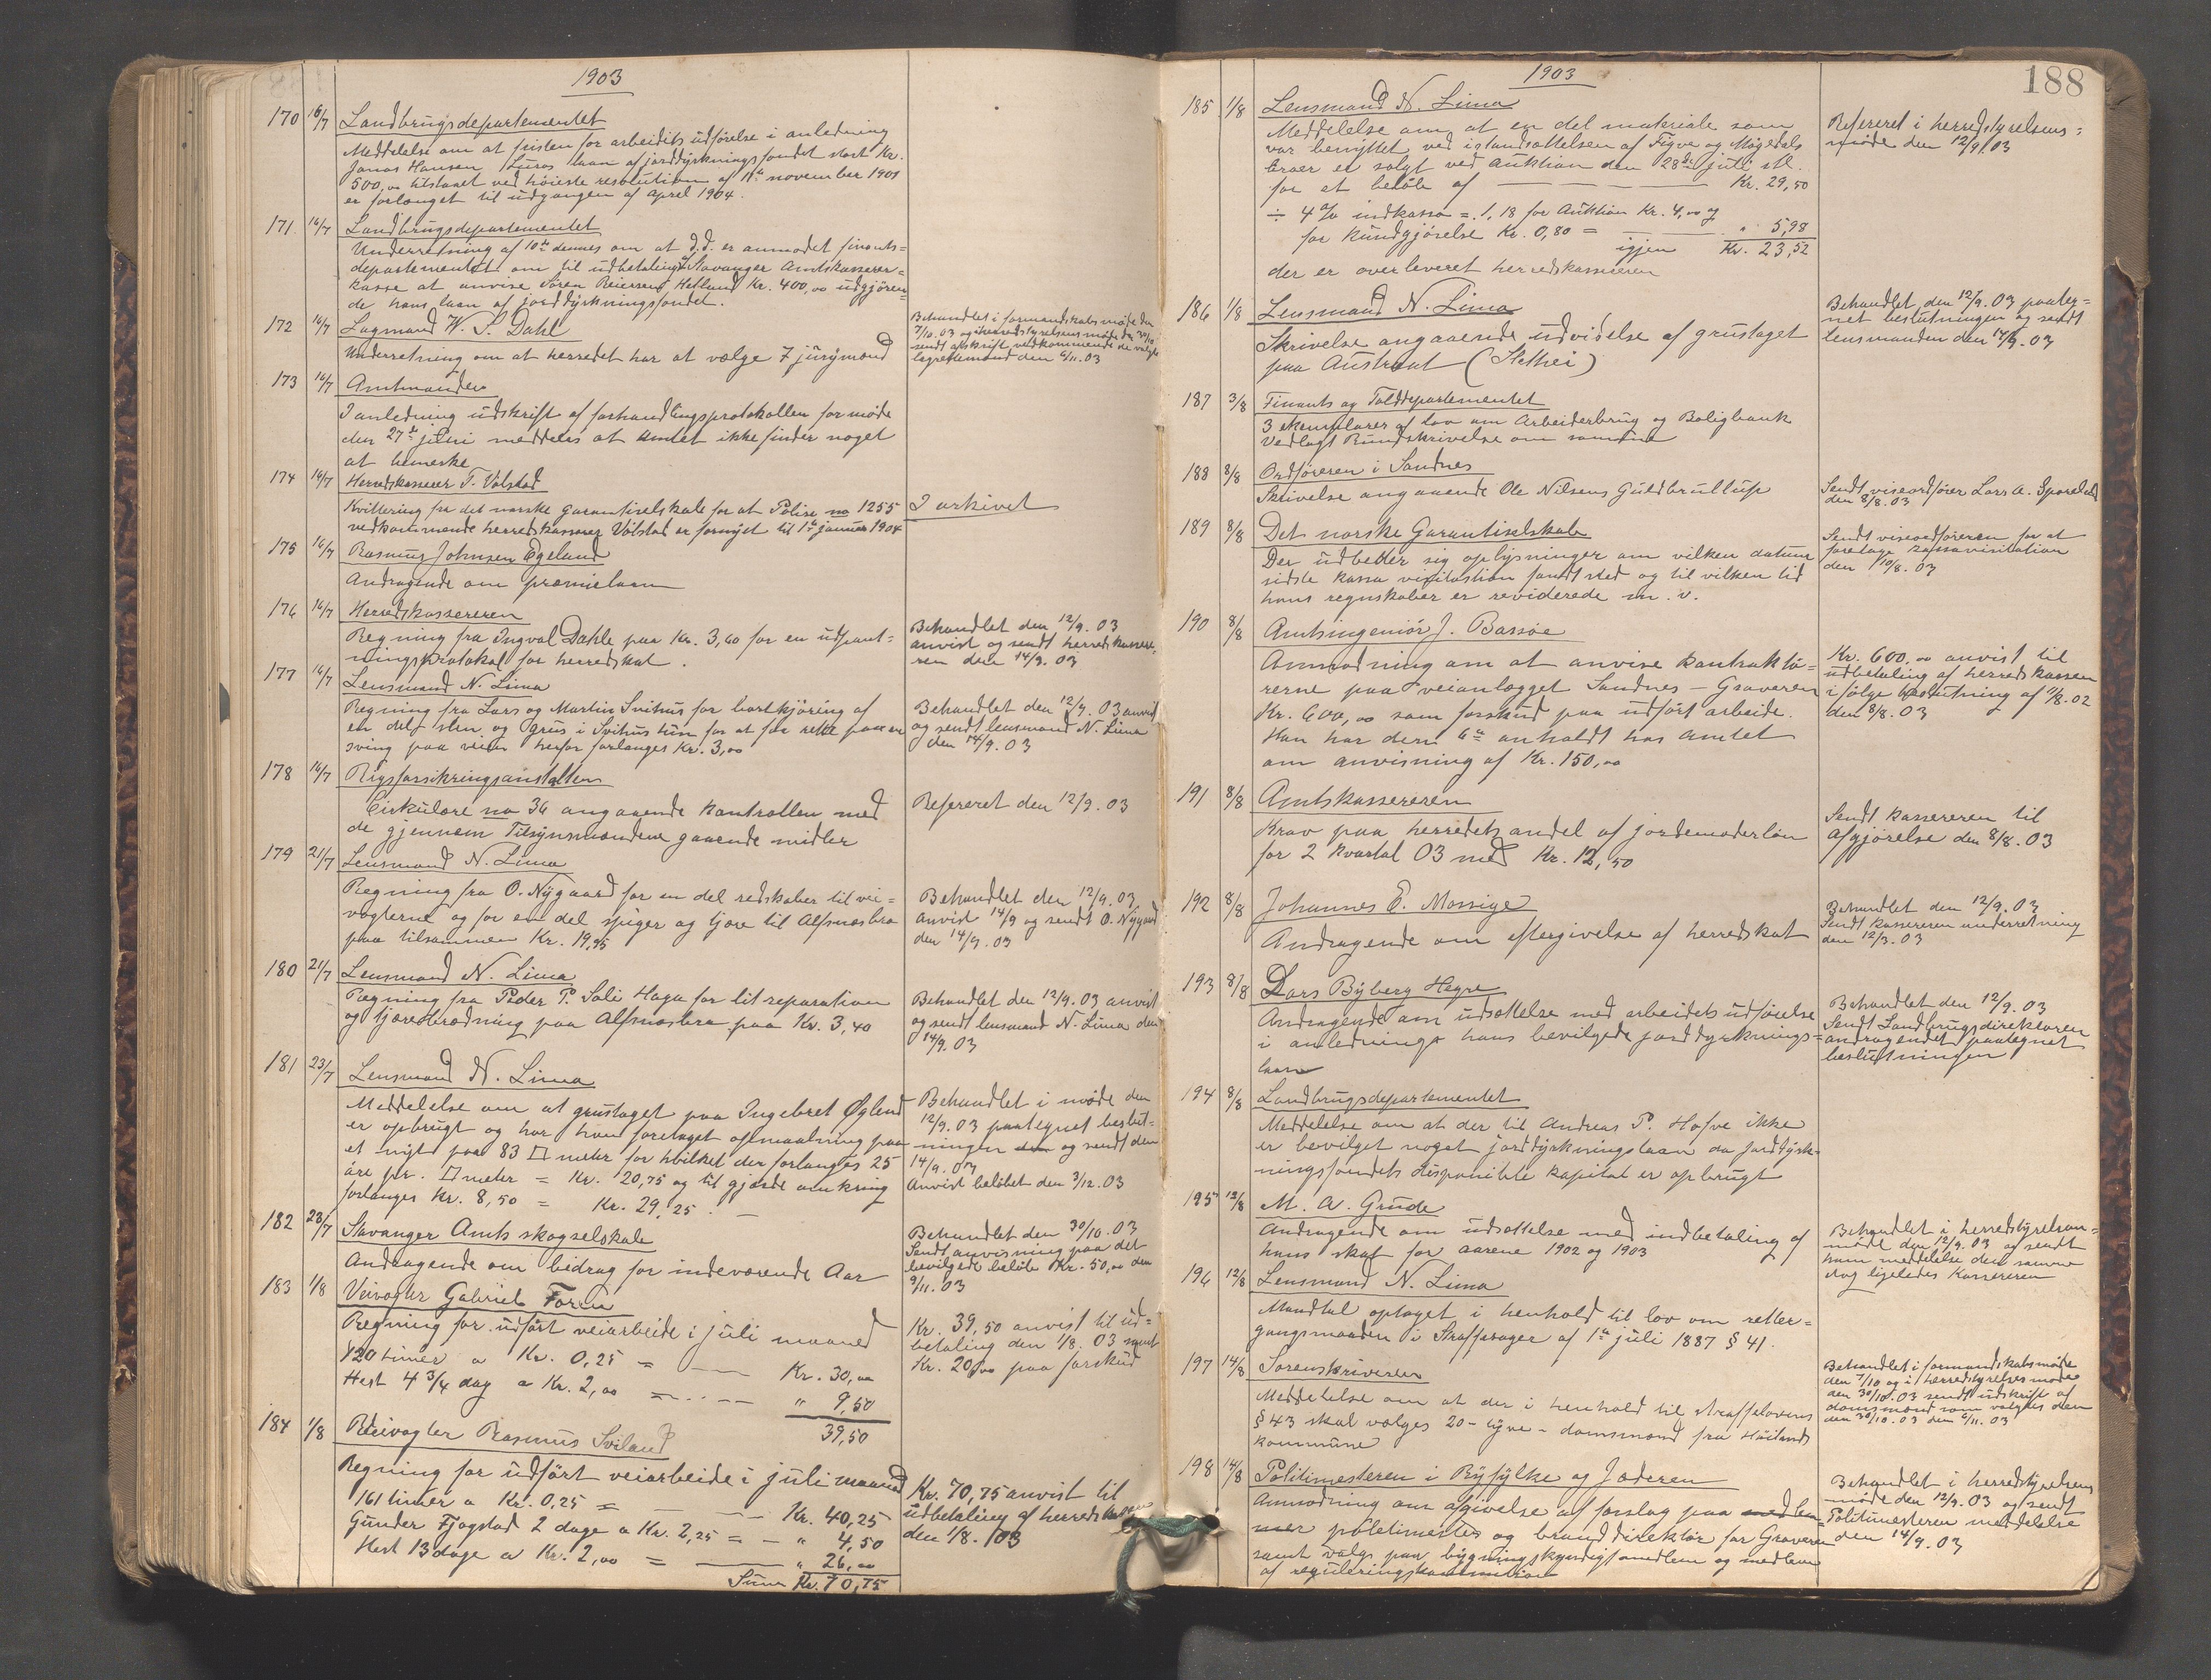 1903
170 16/7 Landbrugsdepartementet
Meddelelse om at fristen for arbeidets udførelse i anledning
Jonas Hansen Luros laan af jorddyrkningsfondet stort Kr.
500,00 tilstaaet ved høieste resolution af 11te november 1901
er forlænget til udgangen af april 1904.
171. 16/7 Landbrugsdepartementet
Underretning af 10de dennes om at d.d. er anmodet finants-
departementet om til udbetaling Stavanger Amtskasserer-
kasse at anvise Sören Reiersen Hetland Kr. 400,00 udgjören-
de hans laan af jorddyrkningsfondet.
172 16/7 Lagmand W. S. Dahl
Underretning om at herredet har at vælge 7 jurymænd
Behandlet i formandskabsmöde den
7/10.03 og i herredstyrelsens möde den 30/10
sendt afskrift vedkommende de valgte
lagrettemænd den 6/11.03
173 16/7 Amtmanden
I anledning udskrift af forhandlingsprotokollen for möde
den 27de juni meddeles at Amtet ikke finder noget
at bemerke
174 16/7 Herredskasserer T. Volstad
Kvittering fra det norske Garantiselskab for at Polise no 1255
vedkommende herredskasserer Volstad er fornyet til 1ste januar 1904
I arkivet
175 16/7 Rasmus Johnsen Egeland
Andragende om præmielaan
176 16/7 Herredskassereren
Regning fra Ingval Dahle paa Kr. 3,60 for en udpant-
ningsprotokol for herredskat.
Behandlet den 12/9.03
anvist og sendt herredskassere-
ren den 14/9.03
177 16/7 Lensmand N. Lima
Regning fra Lars og Martin Svihus for bortkjöring af
en del sten og grus i Svihus tun for at faa rette paa en
sving paa veien herfor forlanges Kr. 3,00
Behandlet den 12/9.03 anvist
og sendt lensmand N. Lima
den 14/9.03
178 16/7 Rigsforsikringsanstalten
Cirkulære no 36 angaaende kontrollen med
de gjennem Tilsynsmændene gaaende midler
Refereret den 12/9.03
179 21/7 Lensmand N. Lima
Regning fra O. Nygaard for en del redskaber til vei-
vogterne og for en del spiger og tjære til Alfsnæsbro
paa tilsammen Kr. 19,95
Behandlet den 12/9.03
anvist 14/9 og sendt O. Nygaard
den 14/9.03
180 21/7 Lensmand N. Lima
Regning fra Peder P. Soli Haga for lit reparation
og tjærebrædning paa Alfsnæsbro paa Kr. 3,40
Behandlet den 12/9.03 anvist
og sendt lensmand N. Lima den
14/9.03
181 23/7 Lensmand N. Lima
Meddelelse om at grustaget paa Ingebret Øglend
er opbrugt og har han foretaget opmaalning paa
et nyt paa 83 □ meter for hvilket der forlanges 25
öre pr. □ meter = Kr. 20,75 og til gjærde omkring
forlanges Kr. 8,50 = Kr. 29,25.
Behandlet i möde den
12/9.03 paategnet beslut-
ningen den og sendt den
14/9.03
Anvist belöbet den 3/12.03
182 28/7 Stavanger Amts skogselskab
Andragende om bidrag for indeværende Aar
Behandlet den 30/10.03
Sendt anvisning paa det
bevilgede belöb Kr. 50,00 den
9/11.03
183 1/8 Veivogter Gabriel Forus
Regning for udfört veiarbeide i juli maaned
120 timer a Kr. 0,25 = Kr. 30,00
Hest 4 3/4 dag a Kr. 2,00 = " 9,50
39,50
Kr. 39,50 anvist til ud-
betaling den 1/8.03 samt
Kr. 20,00 paa forskud
184 1/8 Veivogter Rasmus Sviland
Regning for udfört veiarbeide i juli maaned
161 timer a Kr. 0,25 = Kr. 40,25
Gunder Fjogstad 2 dage a Kr. 2,25 = " 4,50
Hest 13 dage a Kr. 2,00 = " 26,00
Sum Kr. 70,75
Kr. 70,75 anvist til
udbetaling af herredskassen
den 1/8.03
1903
188
185 1/8 Lensmand N. Lima
Meddelelse om at en del materiale som
var benyttet ved istandsættelsen af Figve og Mögedals
broer er solgt ved auktion den 28de juli sl.
for at belöb af Kr. 29,50
÷ 4 % indkasso = 1,18 for Auktion Kr. 4,00 og
for Kundgjörelse Kr. 0,80 = " 5,98
igjen Kr. 23,52
der er overleveret herredskassereren
Refereret i herredstyrelsens-
möde den 12/9.03
186 1/8 Lensmand N. Lima
Skrivelse angaaende udvidelse af grustaget
paa Austraat (Stethei)
Behandlet den 12/9.03 paateg-
net beslutningen og sendt
lensmanden den 14/9.03
187 3/8 Finants og Tolddepartementet
3 eksemplarer af lov om Arbeiderbrug og Boligbank
Vedlagt Rundskrivelse om samme
188 8/8 Ordföreren i Sandnes
Skrivelse angaaende Ole Nilsens Guldbrullup
Sendt viseordförer Lars A. Sporeland
den 8/8.03
189 8/8 Det norske Garantiselskab
Der udbetter sig oplysninger om vilken datum
sidste kassa visitastion fandt sted og til vilken tid
hans regnskaber er reviderede m.v.
Sendt viseordföreren for at
foretage kassavisitation
den 10/8.03
190 8/8 Amtsingeniör J. Bassöe
Anmodning om at anvise kontraktö-
rerne paa veianlægget Sandnes - Graveren
Kr. 600,00 som forskud paa udfört arbeide.
Han har den 6te anholdt hos Amtet
om anvisning af Kr. 150,00
Kr. 600,00 anvist til
udbetaling af herredskassen
ifölge beslutning af 11/8.02
den 8/8.03
191 8/8 Amtskassereren
Krav paa herredets andel af jordemoderlön
for 2 kvartal 03 med Kr. 12,50
Sendt kassereren til
afgjörelse den 8/8.03
192 8/8 Johannes E. Mossige
Andragende om eftergivelse af herredskat
Behandlet den 12/9.03
Sendt kassereren underretning
den 12/9.03
193 8/8 Lars Byberg Hegre
Andragende om udsættelse med arbeidets udförelse
i anledning hans bevilgede jorddyrknings-
laan
Behandlet den 12/9.03
Sendt Landbrugsdirektören
andragendet paategnet
beslutningen
194 8/8 Landbrugsdepartementet
Meddelelse om at der til Andreas P. Hofve ikke
er bevilget noget jorddyrkningslaan da jorddyrk-
ningsfondets disponible kapital er opbrugt
195 12/8 M. A. Grude
Andragende om udsættelse med indbetaling af
hans skat for aarene 1902 og 1903
Behandlet i herredstyrelsen-
möde den 12/9.03 og sendt
ham meddelelse den samme
dag ligeledes Kassereren
196 12/8 Lensmand N. Lima
Mandtal optaget i henhold til lov om retter-
gangsmaaden i Straffesager af 1ste juli 1887 § 41.
197 14/8 Sorenskriveren
Meddelelse om at der i henhold til straffelovens
§ 43 skal vælges 20 - tyve - domsmænd fra Höilands
kommune
Behandlet i formandskabsmöde
den 7/10 og i herredstyrelses möde
den 30/10.03 sendt udskrift af
domsmænd som valgtes den
den 30/10.03 den 6/11.03
198 14/8 Politimesteren i Ryfylke og Jæderen
Anmodning om afgivelse af forslag paa medlem-
mer politimester og branddirektör for Graveren
samt valg paa bygningskyndigt medlem og medlem
af reguleringskommission
Behandlet i herredstyrelsens
möde den 12/9.03 og sendt
Politimesteren meddelelse
den 14/9.03